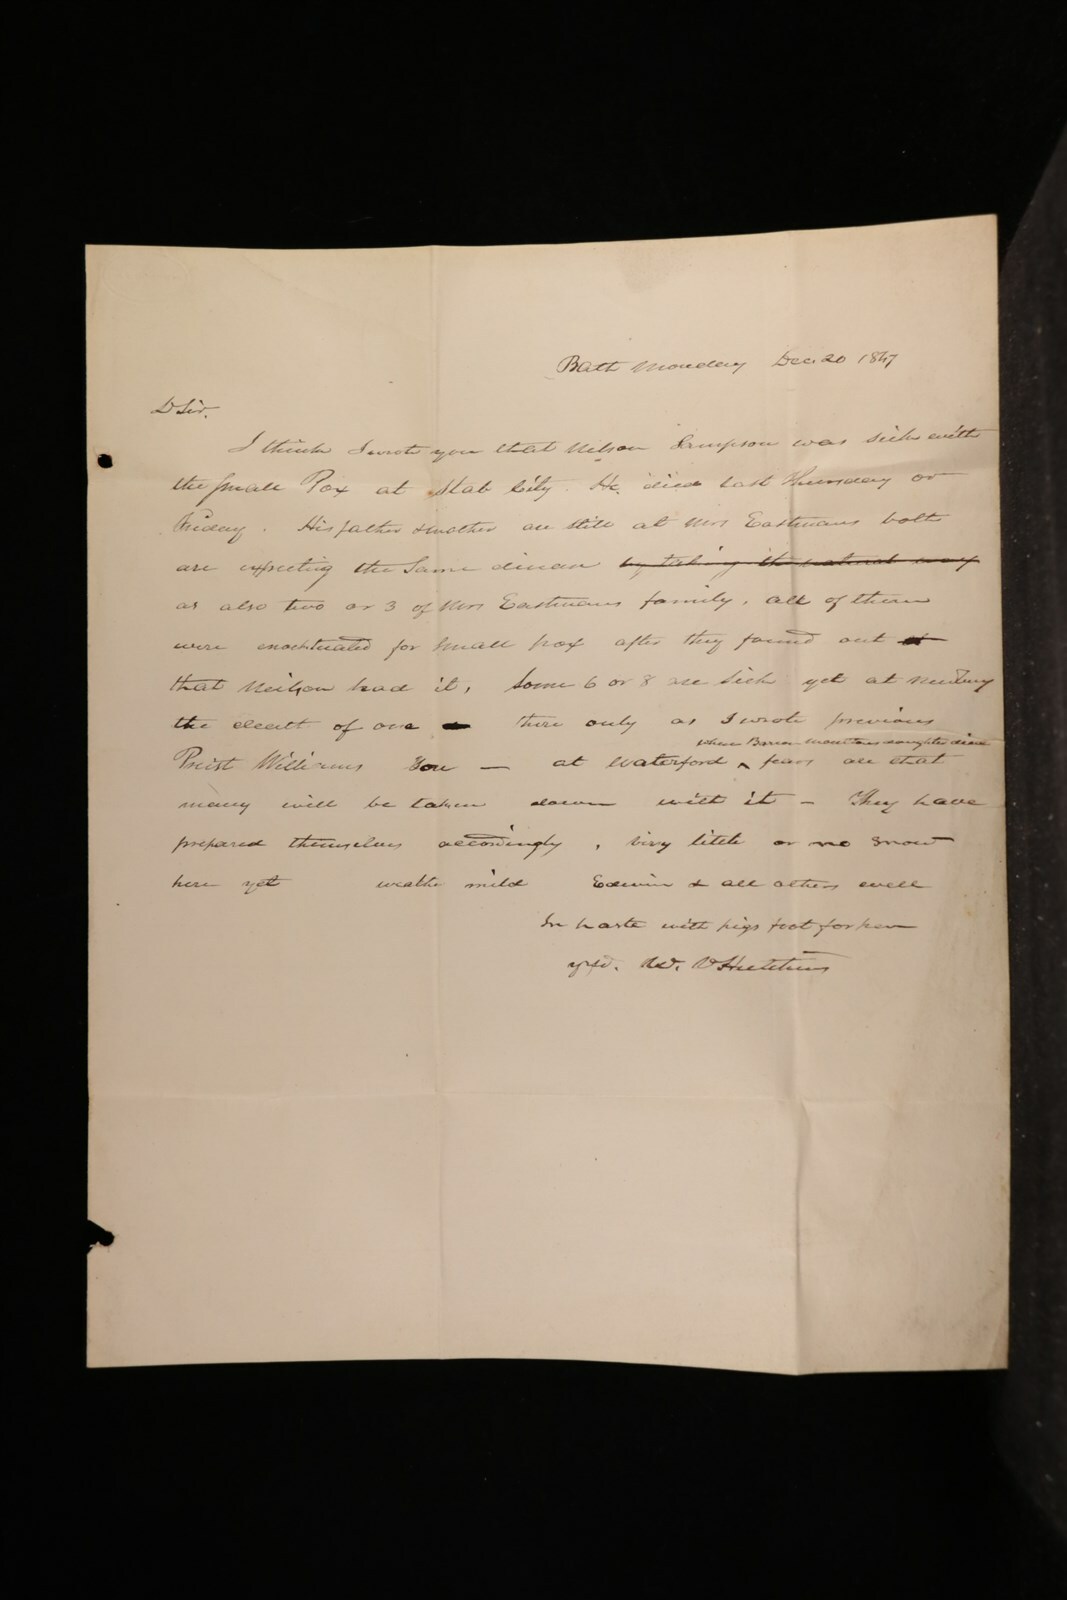 Bath Monday Dec. 20 1847
D Sir.
I think I wrote you that Nelson Sampson was sick with
the small Pox at Slab City. He died last Thursday or
Friday. His father & mother are still at Mrs Eastmans both
are expecting the same disease by taking it the natural way
as also two or 3 of Mrs Eastmans family, all of them
were inoculated for small pox after they found out
that Neilson had it, Some 6 or 8 are sick yet at Newbury
the death of one there only as I wrote previous
Priest Williams Son — at Waterford fears are that
when daughter died
many will be taken down with it — They have
prepared themselves accordingly, very little or no snow
here yet weather mild Edwin & all others well
In haste with pigs foot for pen
yrfd. Hutchins